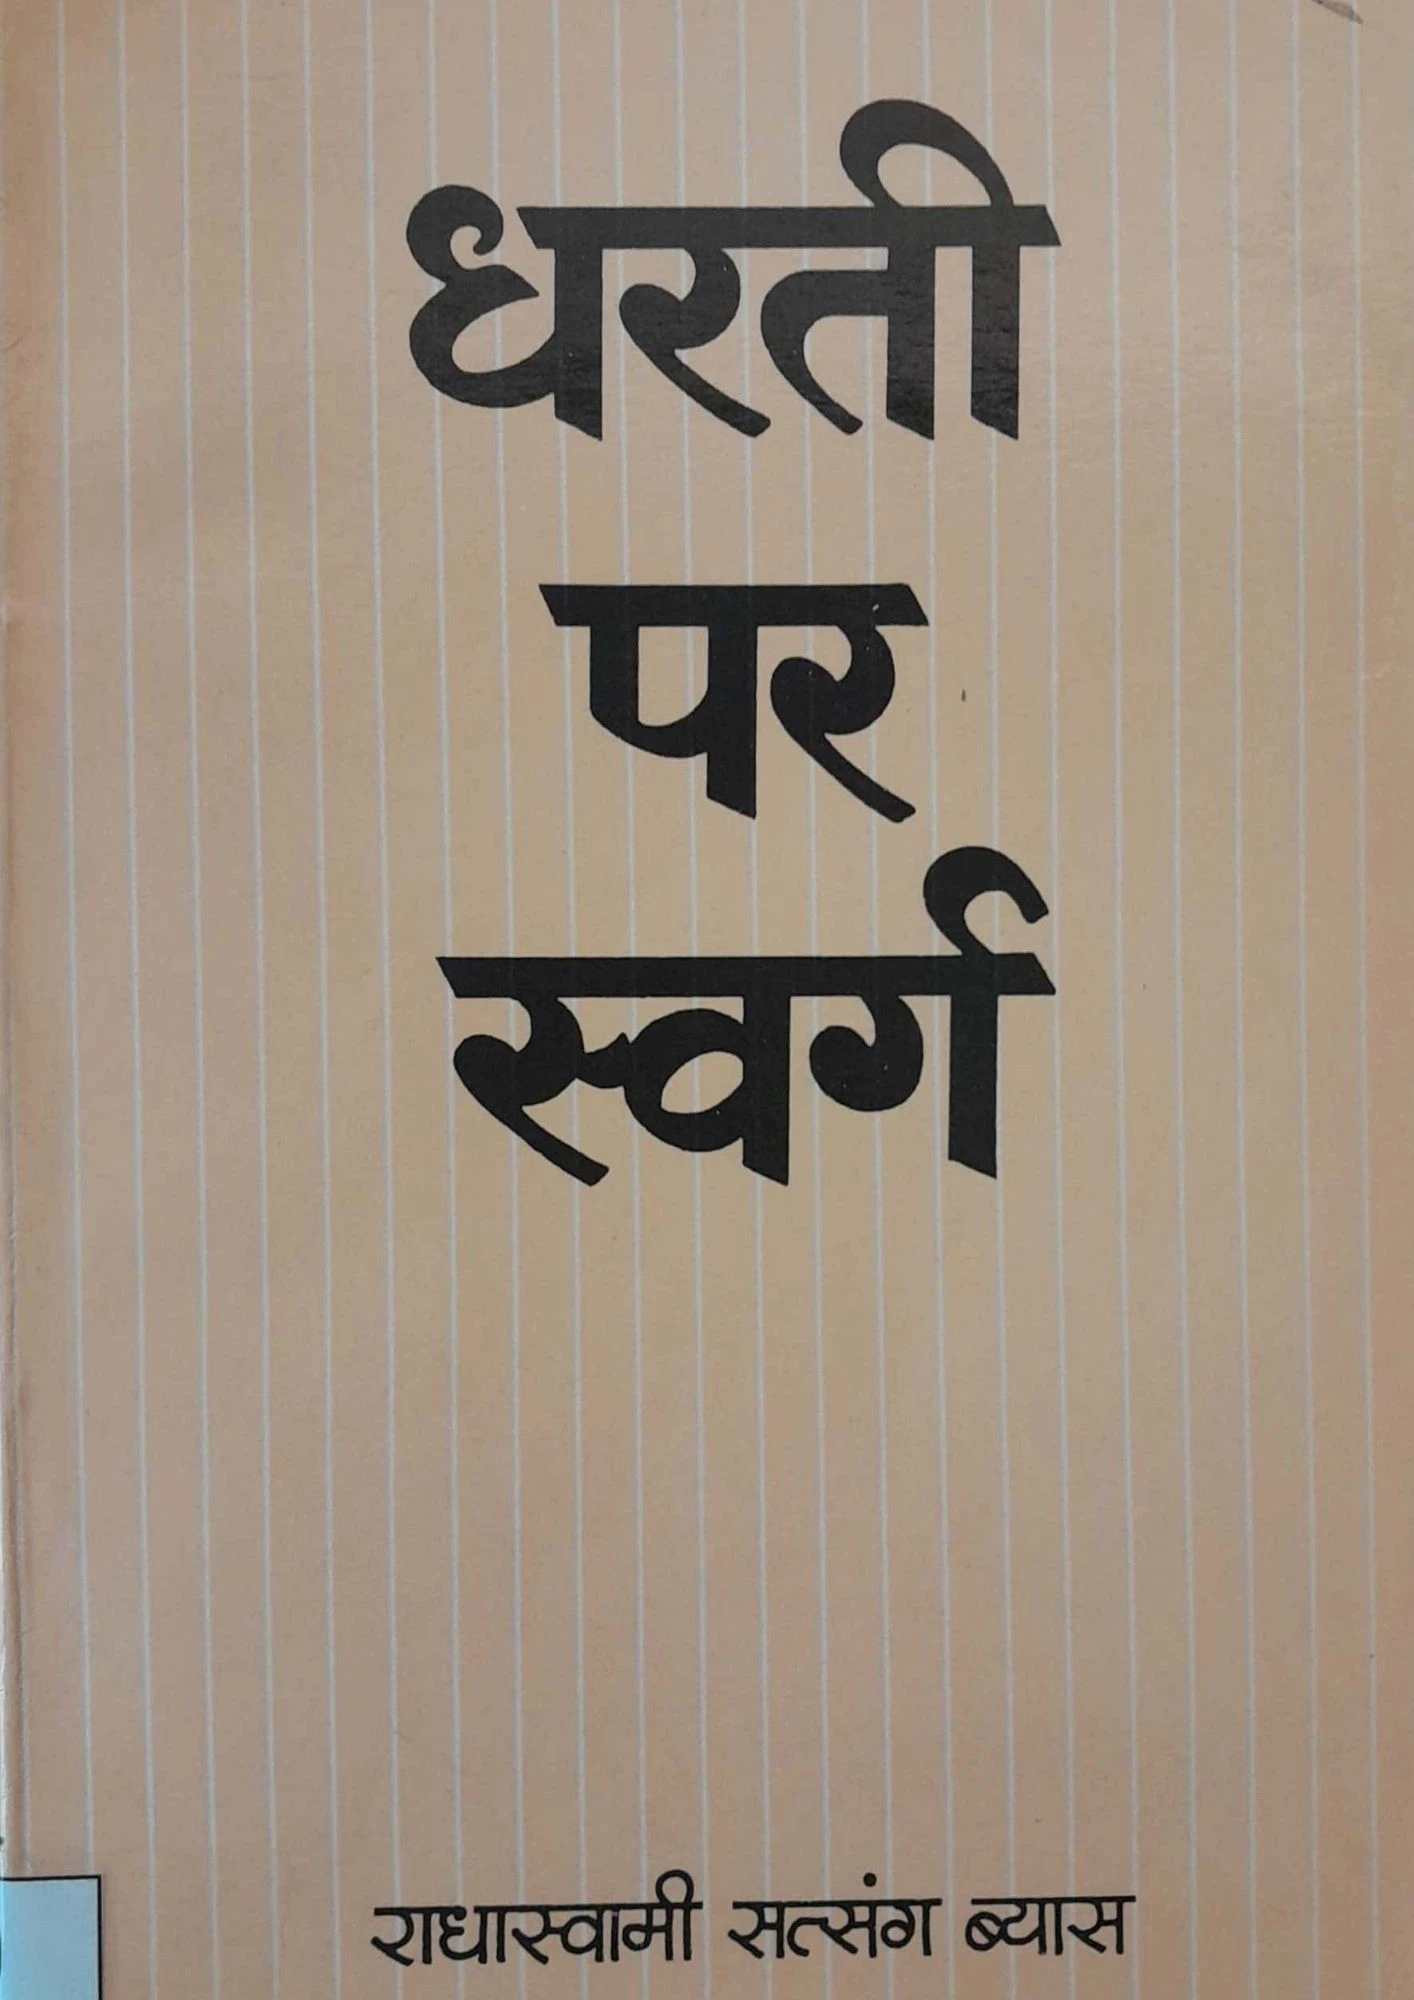 धरती
पर
स्वर्ग
राधास्वामी सत्संग ब्यास